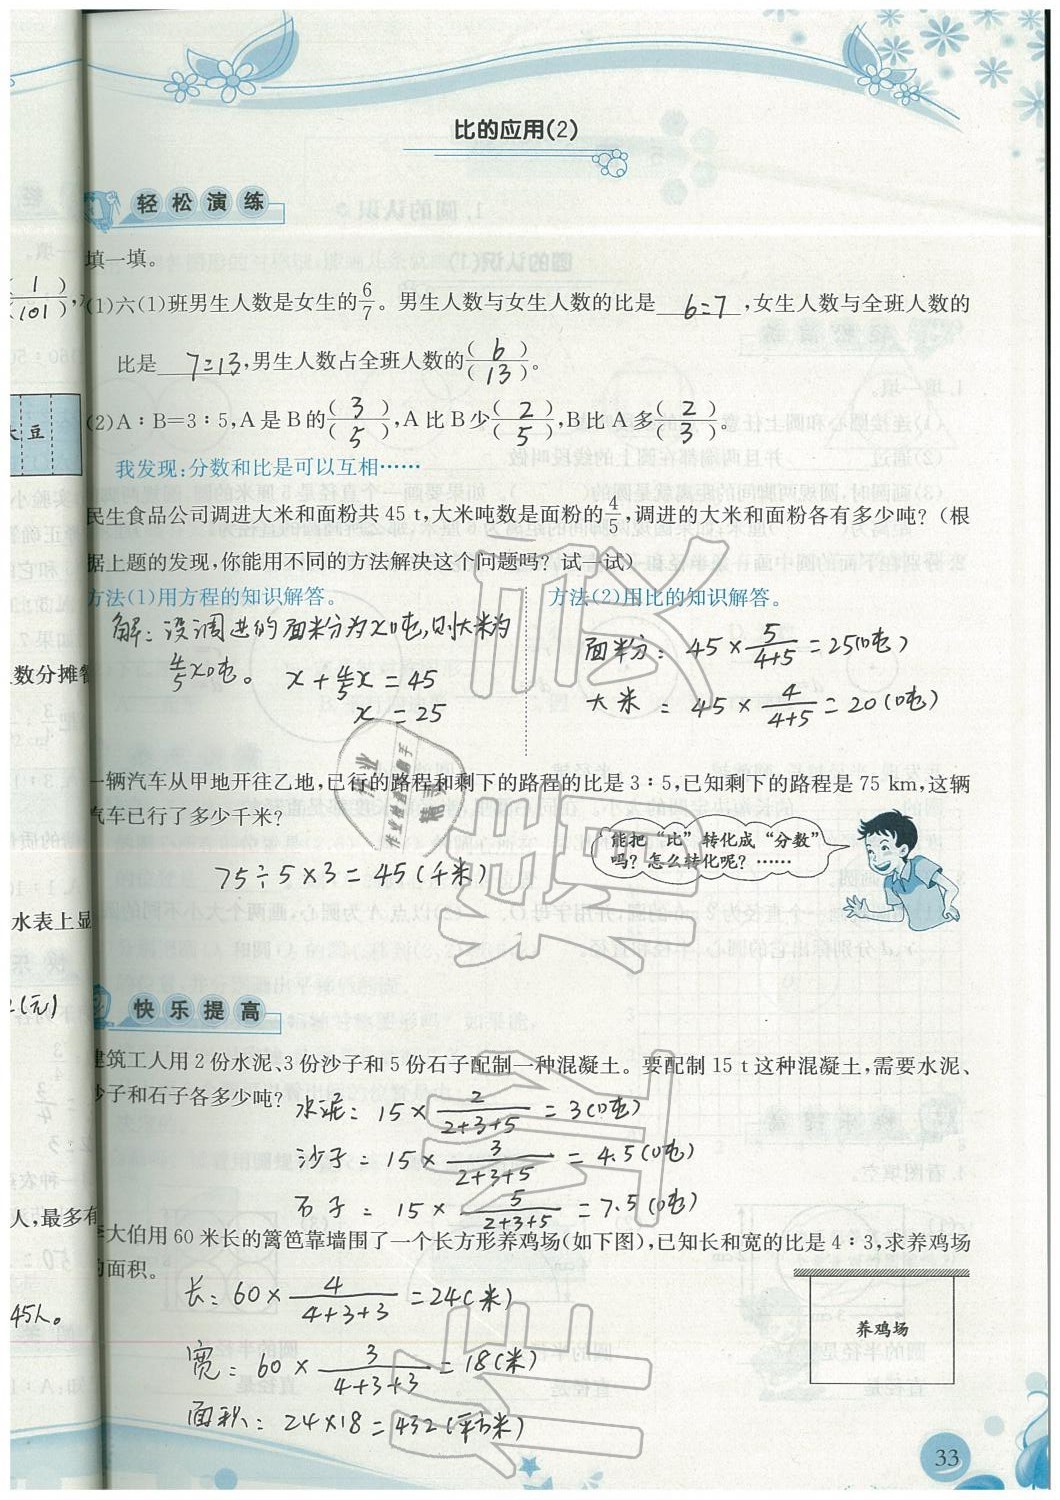 比的应用(2)
轻松演练
填一填。
(1)六(1)班男生人数是女生的6/7。男生人数与女生人数的比是 6:7 ,女生人数与全班人数的
比是 7:13 ,男生人数占全班人数的(6)/(13)。
(2)A∶B=3∶5,A是B的(3)/(5),A比B少(2)/(5),B比A多(2)/(3)。
我发现:分数和比是可以互相……
民生食品公司调进大米和面粉共45 t,大米吨数是面粉的4/5,调进的大米和面粉各有多少吨?(根
据上题的发现,你能用不同的方法解决这个问题吗?试一试)
方法(1)用方程的知识解答。
解:设调进的面粉为x吨,则大米为
4/5x吨。 x+4/5x=45
x=25
方法(2)用比的知识解答。
面粉:45×5/(4+5)=25(吨)
大米:45×4/(4+5)=20(吨)
一辆汽车从甲地开往乙地,已行的路程和剩下的路程的比是3∶5,已知剩下的路程是75 km,这辆
汽车已行了多少千米?
能把“比”转化成“分数”
吗?怎么转化呢?……
75÷5×3=45(千米)
快乐提高
建筑工人用2份水泥、3份沙子和5份石子配制一种混凝土。要配制15 t这种混凝土,需要水泥、
沙子和石子各多少吨?
水泥:15×2/(2+3+5)=3(吨)
沙子:15×3/(2+3+5)=4.5(吨)
石子:15×5/(2+3+5)=7.5(吨)
李大伯用60米长的篱笆靠墙围了一个长方形养鸡场(如下图),已知长和宽的比是4∶3,求养鸡场
的面积。
长:60×4/(4+3+3)=24(米)
宽:60×3/(4+3+3)=18(米)
面积:24×18=432(平方米)
养鸡场
33
(1)/(101)
豆
数分摊
水表上显
(元)
人,最多有
45人。